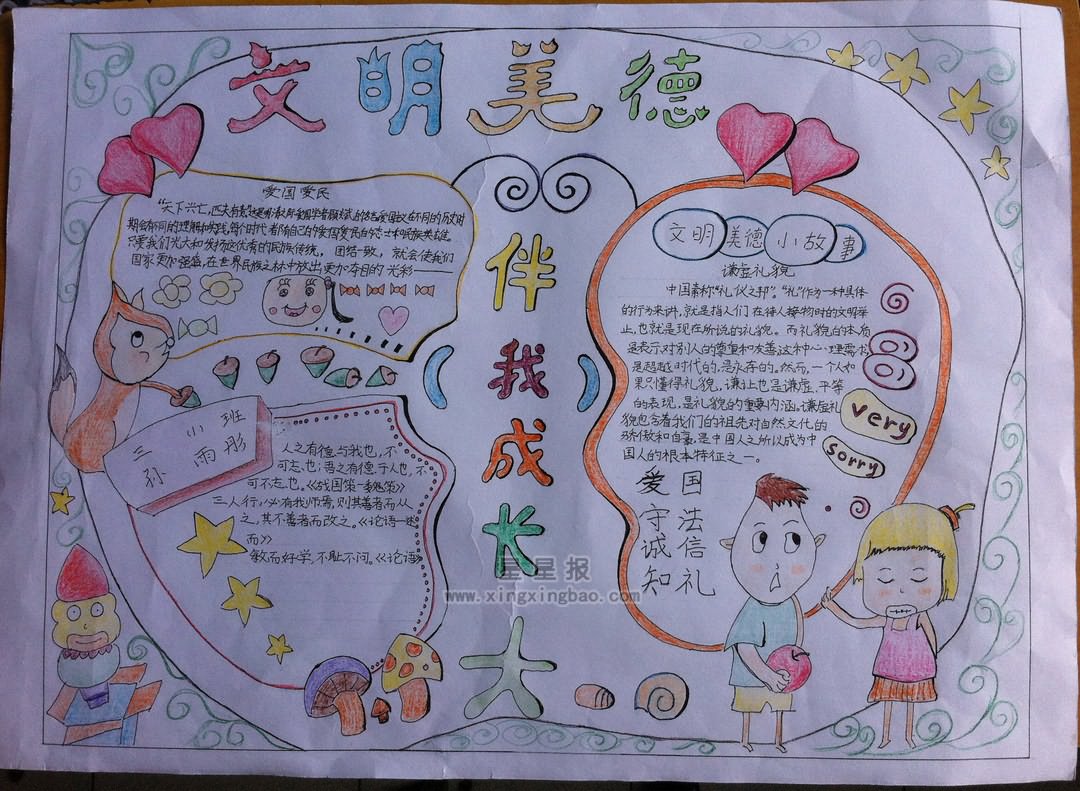 文明美德
伴我成长大
爱国爱民
"天下兴亡,匹夫有责"是明末
的名言爱国主义在不同的历史时
期会有不同的理解和实践,每个时代都有自己的爱国爱民的志士和民族英雄。
只要我们光大和发扬这优秀的民族传统,团结一致,就会使我们
国家更加强盛,在世界民族之林中放出更加夺目的光彩——
三 小 班
孙 雨彤
人之有德与我也,不
可忘也;吾之有德于人也,不
可不忘也。《战国策-魏策》
三人行,必有我师焉,则其善者而从
之,其不善者而改之。《论语-述
而》
敏而好学,不耻不问。《论语》
文明美德小故事
谦虚礼貌
中国素称"礼仪之邦"。"礼"作为一种具体
的行为来讲,就是指人们在待人接物时的文明举
止,也就是现在所说的礼貌。而礼貌的本质
是表示对别人的尊重和友善这种心理需求,
是超越时代的,是永存的。然而,一个人如
果只懂得礼貌,谦让也是谦虚、平等
的表现,是礼貌的重要内涵。谦虚礼
貌也含着我们的祖先对自然文化的
骄傲和自豪,是中国人之所以成为中
国人的根本特征之一。
very
sorry
爱国
守法
诚信
知礼
星星报
www.xingxingbao.com